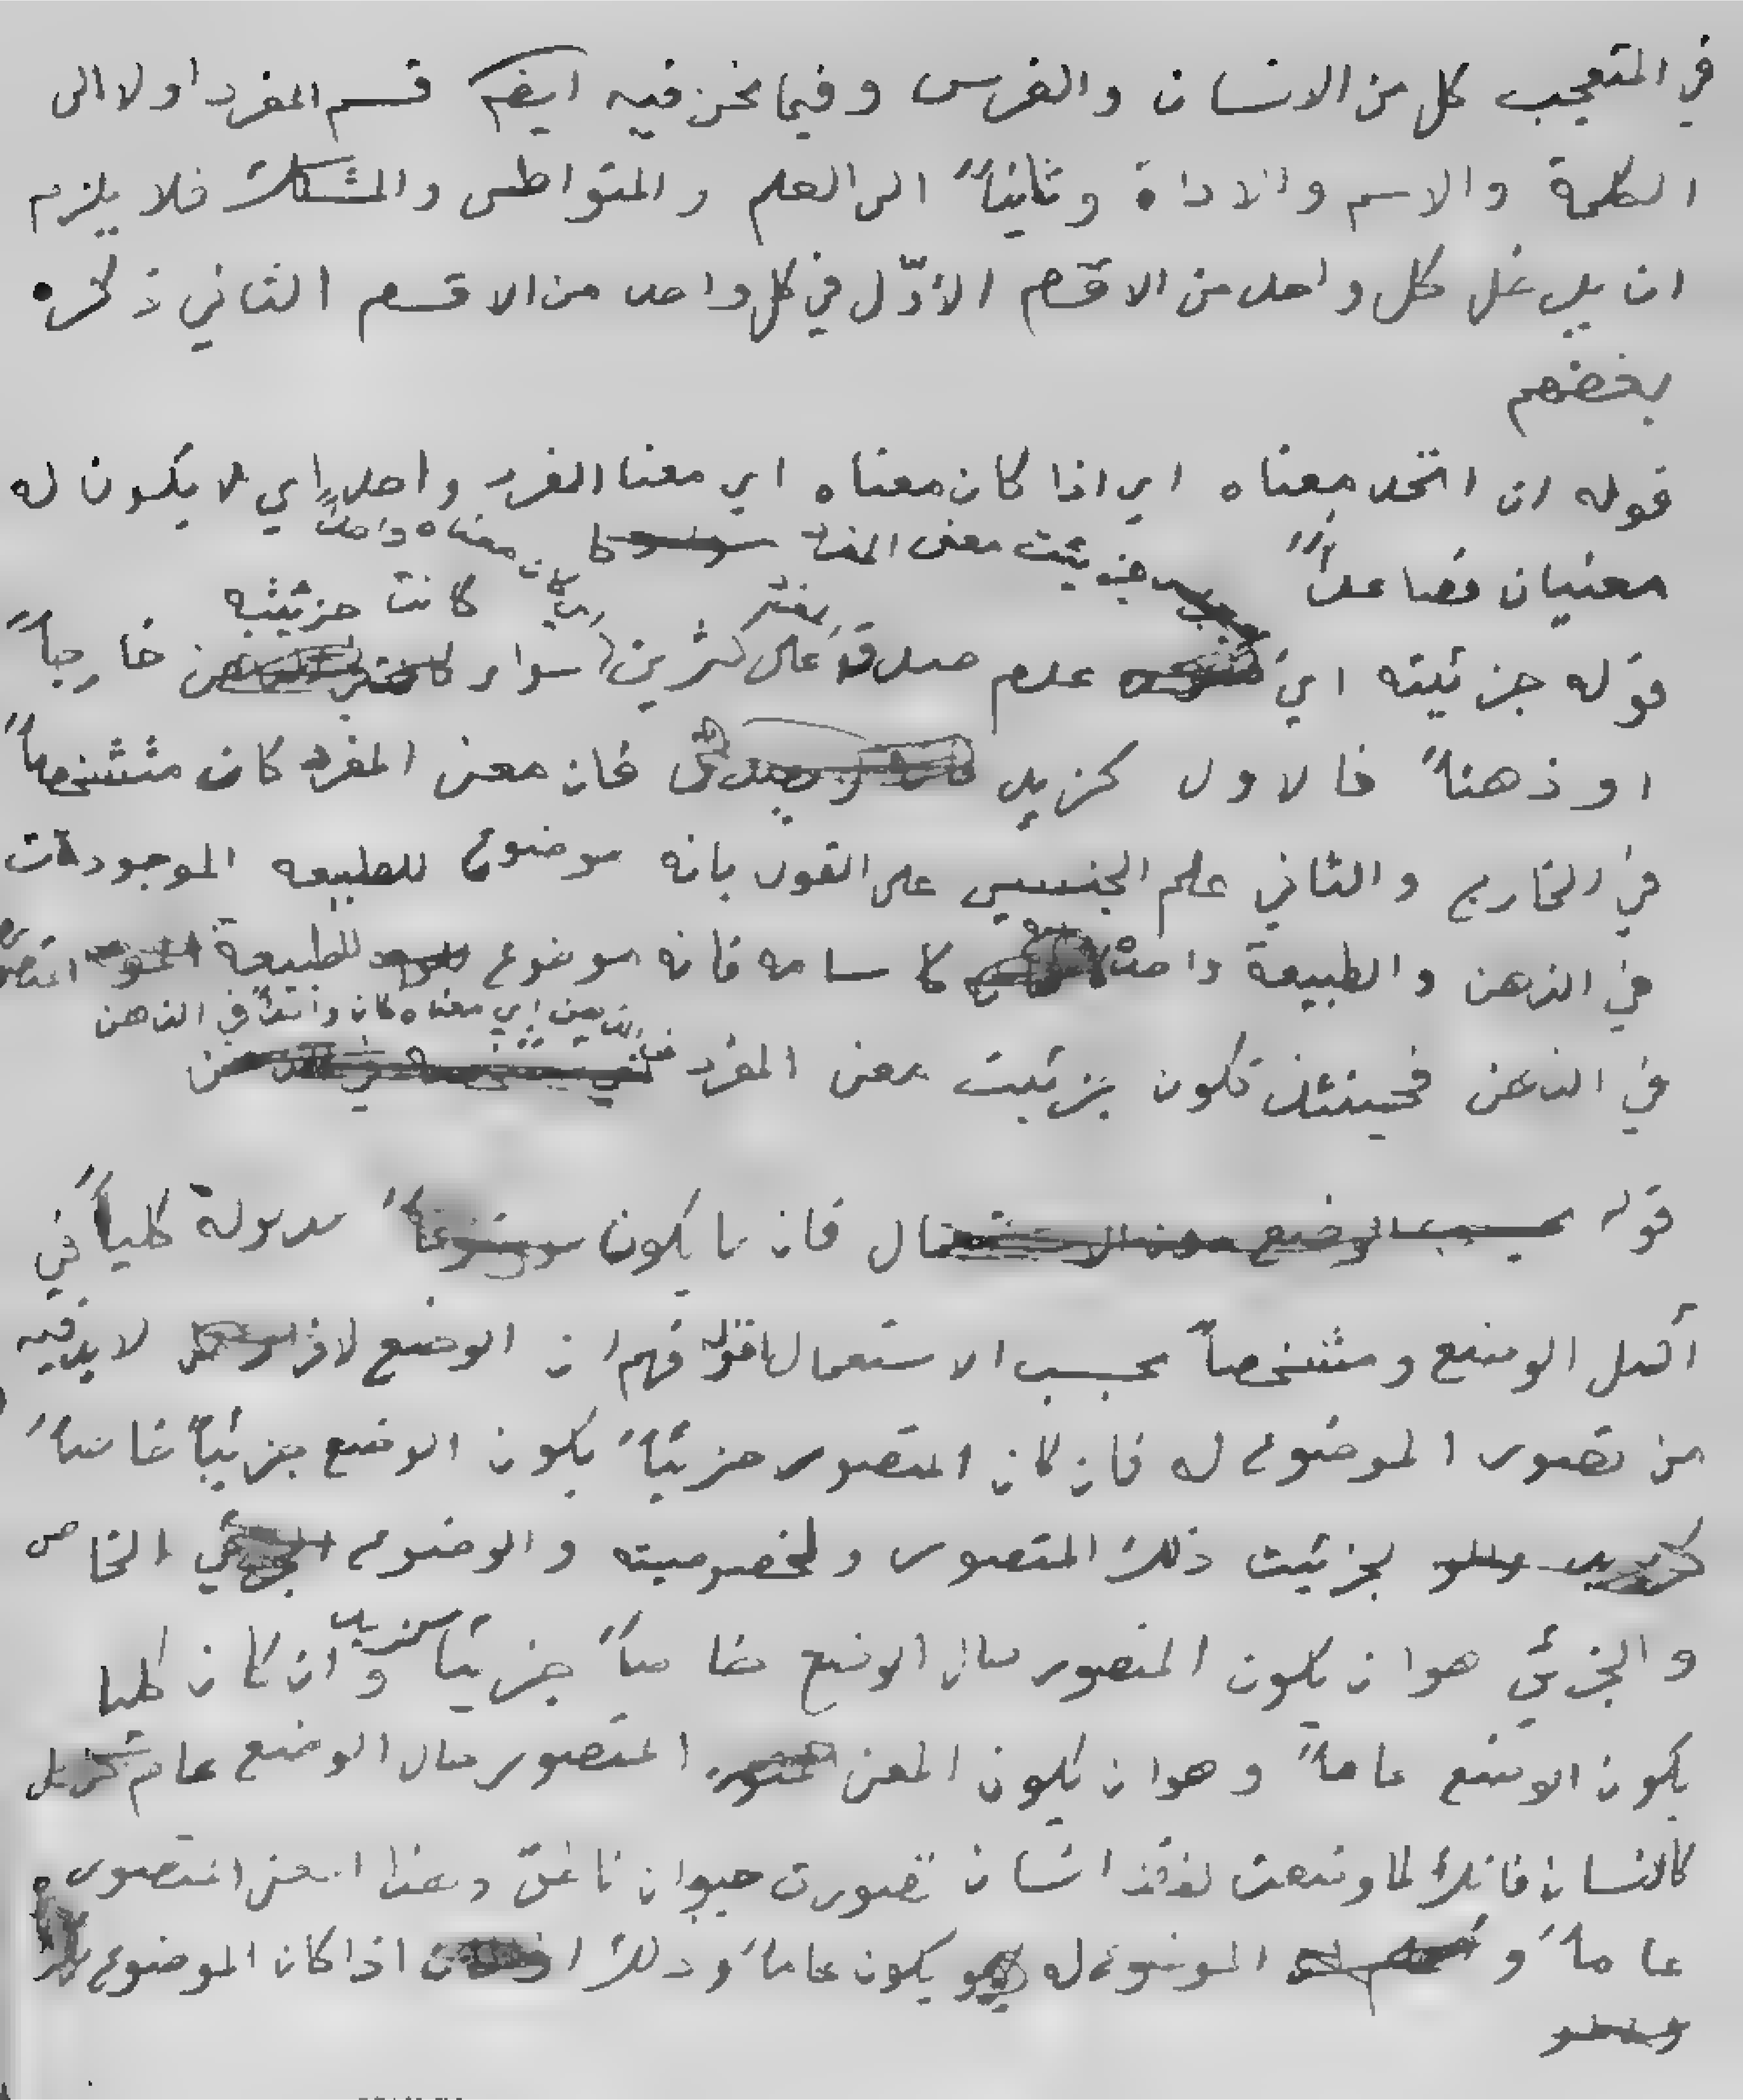 في المتعجب كل من الانسان والفرس وفيما نحن فيه ايضا قسم المفرد اولا الى
الكلمة والاسم والاداة وثانياً الى العلم والمتواطى والمشكك فلا يلزم
ان يدخل كل واحد من الاقسم الأوّل في كل واحد من الاقسم الثاني ذكره
بعضهم
قوله ان اتحد معناه اي اذا كان معناه اي معنا الفرد واحداً اي لا يكون له
معنيان فصاعداً
جزئيت معنى المفرد كان معناه واحداً
قوله جزئيته اي عدم صدقه على كثرين سواء كانت جزئيته خارجاً
او ذهناً فالاول كزيد فان معنى المفرد كان متشخصاً
في الخارج والثاني علم الجنسي على القول بانه موضوع للطبيعه الموجودات
في الذهن والطبيعة واحدة كاسامه فانه موضوع للطبيعة
اي معناه كان واحداً في الذهن
في الذهن فحينئذ تكون جزئيت معنى المفرد
قوله فان ما يكون مدلولة كلياً في
أصل الوضع ومتشخصاً بحسب الاستعمال قوله فهم ان الوضع لابد فيه
من تصور الموضوع له فان كان المتصور جزئيّاً يكون الوضع جزئيّاً خاصاً
لجزئيت ذلك المتصور ولخصوصيته والوضوع الجزئي الخاص
والجزئي هو ان يكون المتصور حال الوضع خاصاً جزئيا كزيد وان كان كليا
يكون الوضع عاماً وهو ان يكون المعنى المتصور حال الوضع عام
كالنسان فانك لما وضعت لفظ انسان تصورت حيوان ناطق وهذا المعنى المتصور
عاماً و الموضوع له يكون عاماً وذلك اذا كان الموضوع